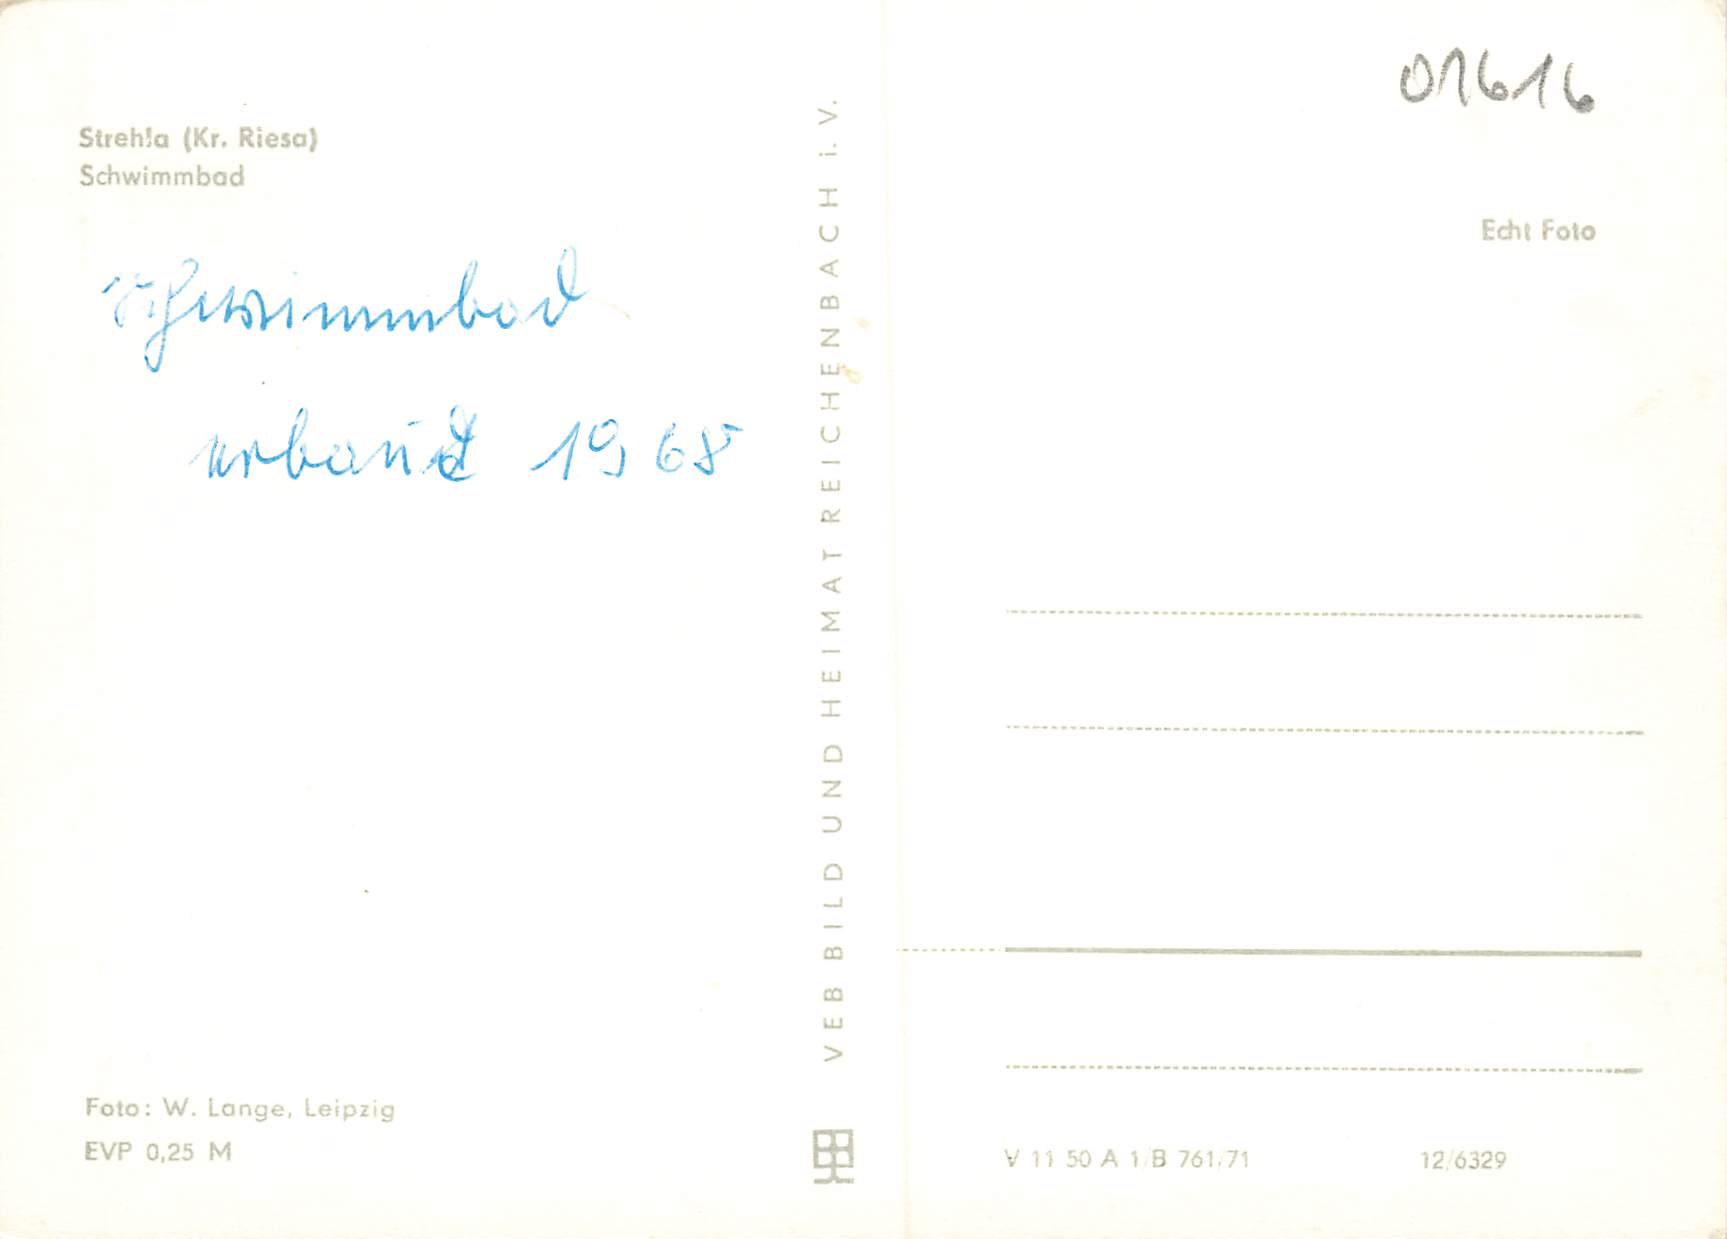 Strehla (Kr. Riesa)
Schwimmbad
Schwimmbad
erbaut 1968
Foto: W. Lange, Leipzig
EVP 0,25 M
VEB BILD UND HEIMAT REICHENBACH i. V.
01616
Echt Foto
V 11 50 A 1/B 761/71
12/6329